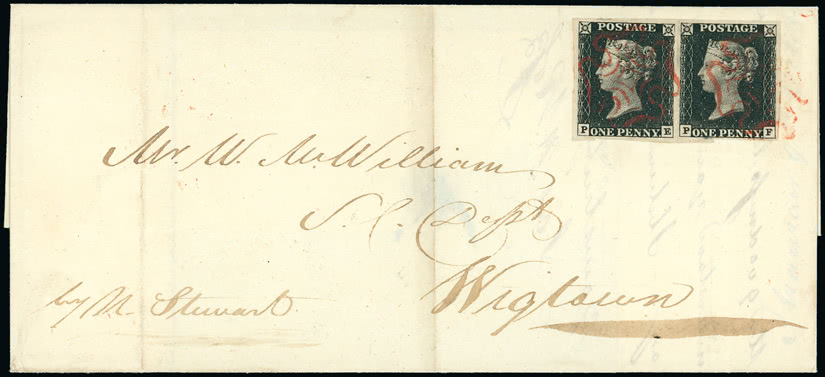 POSTAGE POSTAGE
P ONE PENNY E P ONE PENNY F
Mr. W. McWilliam
S. C. Dept
Wigtown
by N. Stewart